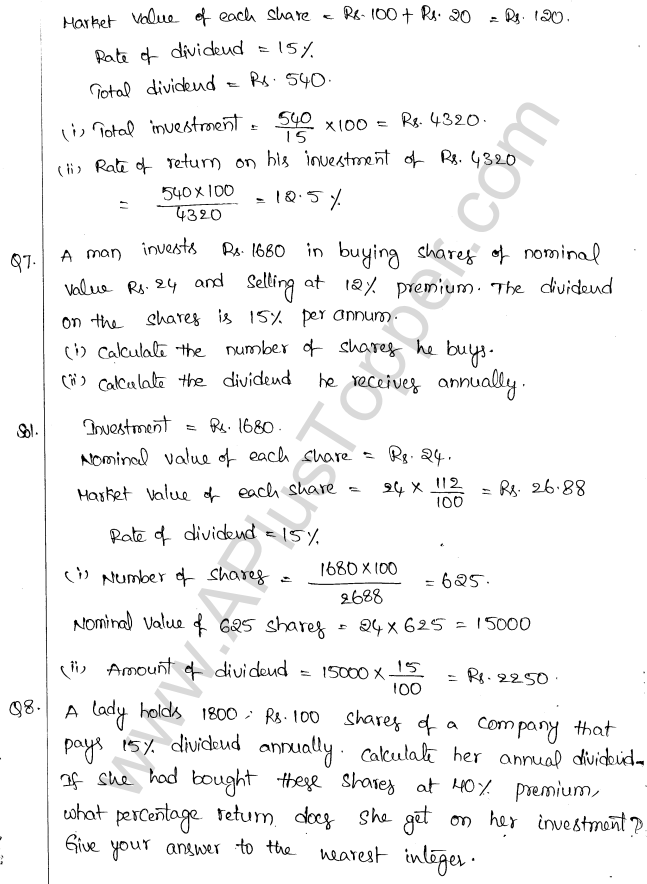 Market value of each share = Rs. 100 + Rs. 20 = Rs. 120.
Rate of dividend = 15%
Total dividend = Rs. 540.
(i) Total investment = 540/15 × 100 = Rs. 4320.
(ii) Rate of return on his investment of Rs. 4320
= 540×100/4320 = 12.5%
Q7. A man invests Rs. 1680 in buying shares of nominal
value Rs. 24 and selling at 12% premium. The dividend
on the shares is 15% per annum.
(i) Calculate the number of shares he buys.
(ii) Calculate the dividend he receives annually.
Sol. Investment = Rs. 1680.
Nominal value of each share = Rs. 24.
Market value of each share = 24 × 112/100 = Rs. 26.88
Rate of dividend = 15%
(i) Number of shares = 1680×100/2688 = 625.
Nominal value of 625 shares = 24 × 625 = 15000
(ii) Amount of dividend = 15000 × 15/100 = Rs. 2250.
Q8. A lady holds 1800, Rs. 100 shares of a company that
pays 15% dividend annually. Calculate her annual dividend.
If she had bought these shares at 40% premium,
what percentage return does she get on her investment?
Give your answer to the nearest integer.
www.APlusTopper.com